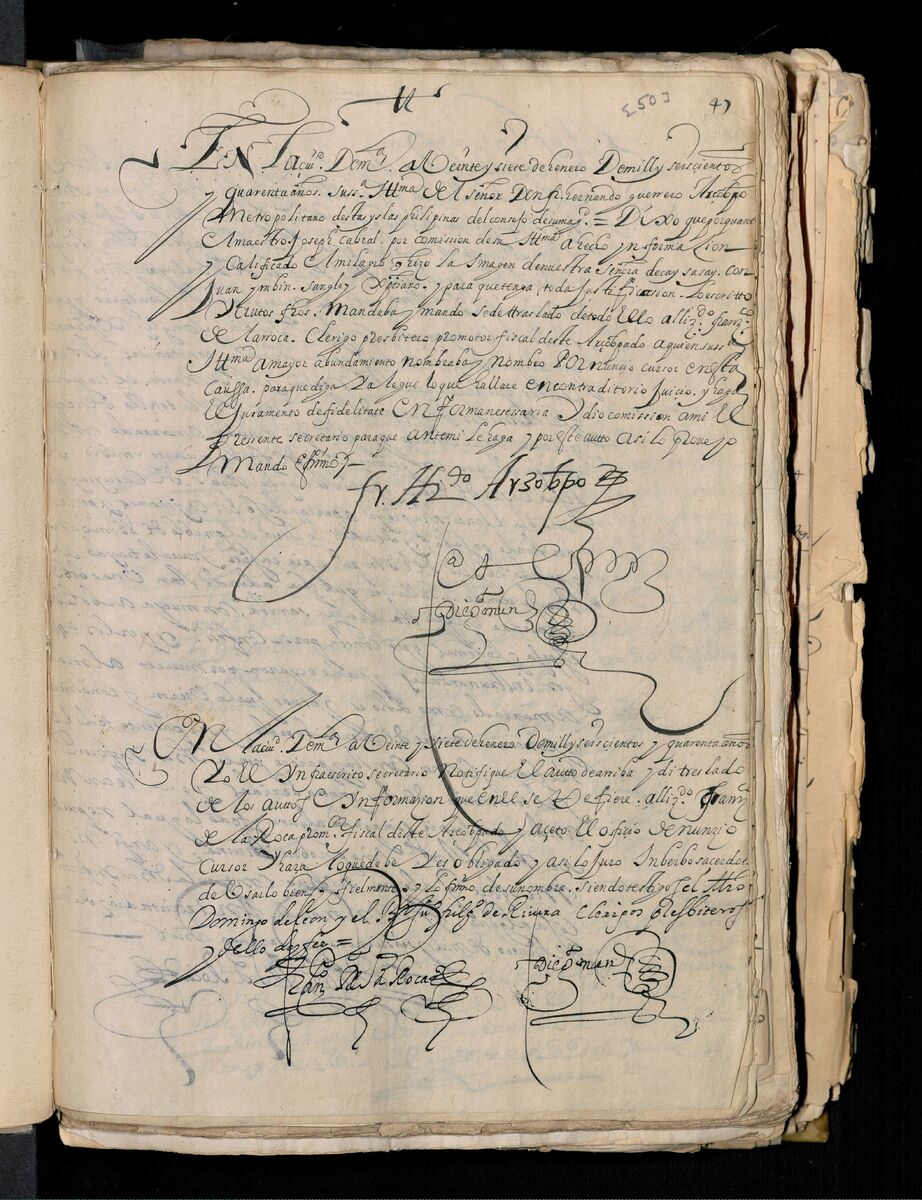 [503] 47
En la ciud. De mla. a Veinte y siete de henero De mill y seis cientos
y quarenta años. su sa. Illma. del señor Don fr. hernando guerrero Arçobpo
Metropolitano destas yslas philipinas del consejo de su magd. = Dixo que por quanto
el maestro Joseph Cabral. por comission de su Illma. a hecho ynformaçion
y calificado el milagro q hizo la Imagen de nuestra señora de caysasay. con
Juan ymbin. sangley Xptiano. y para que tenga, toda justificasion. lo escritto
y autos fhos. Mandaba y mando se de traslado de todo Ello al liz.do franco.
de la roca. Clerigo presbitero promotor fiscal deste Arçobpado a quien su sa.
Illma a mayor abundamiento nombraba y nombro Por nuncio cursor en esta
Caussa. para que diga Y alegue lo que hallare en contraditorio Juicio. y haga
El Juramento de fidelitate En forma nesessaria Y dio comission a mi El
Presente secretario para que ante mi le haga y por este autto asi lo proveyo
Mando e firmo
fr. Hdo Arzobpo
Diego mun
En la ciud. De mla a Veinte y siete de henero De mill y seis cientos y quarenta años
Yo El Ynfraescrito secretario Notifique El autto de arriba y di treslado
de los auttos e Ynformazion que en el se Refiere. al liz.do Franco
de la Roca promor fiscal deste Arçobpado y açeto El ofiçio De nunzio
Cursor Y hara lo que debe Y es obligado y asi lo Juro In berbo sacerdotis
de Usarlo bien y fielmente y lo firmo de su nombre. siendo testigos el
Domingo de leon y el de Rivera Clerigos Presbiteros
y dello doy fee =
Franco de la Roca
Diego mun